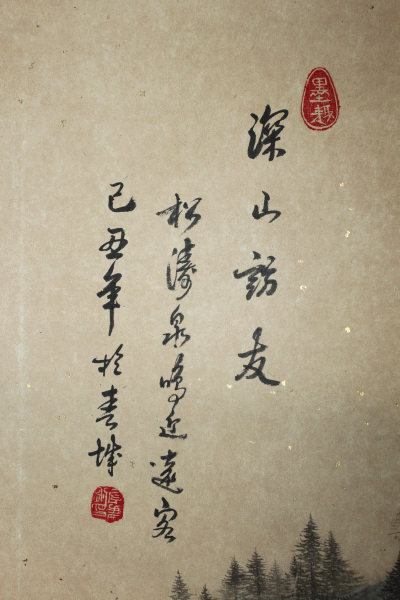 墨趣
深山訪友
松濤泉鳴迎遠客
己丑年於城